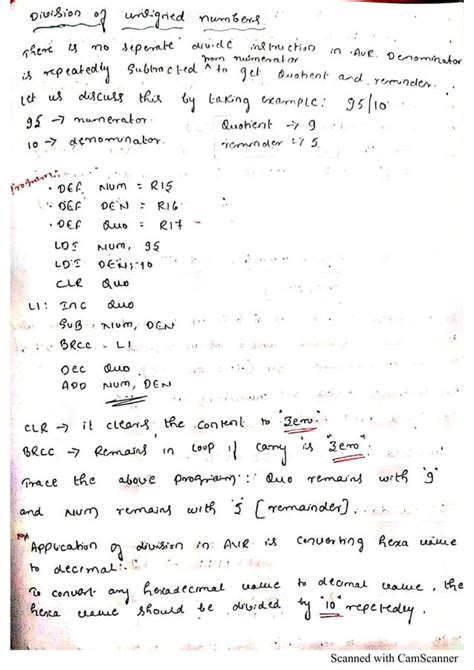 Division of unsigned numbers:
There is no seperate divide instruction in AVR. Denominator
is repeatedly subtracted ^ from numerator to get Quotient and reminder.
Let us discuss this by taking example: 95/10
95 → numerator. Quotient → 9
10 → denominator. reminder :→ 5.
Program:-
.DEF NUM = R15
.DEF DEN = R16
.DEF QUO = R17
LDI NUM, 95
LDI DEN, 10
CLR QUO
L1: INC QUO
SUB NUM, DEN
BRCC L1
DEC QUO
ADD NUM, DEN
CLR → it clears the content to "Zero."
BRCC → Remains in loop if carry is "Zero"
Trace the above program: Quo remains with "9"
and NUM remains with '5' [remainder].
Application of division in AVR is converting hexa value
to decimal:-
To convert any hexadecimal value to decimal value, the
hexa value should be divided by "10" repetedley.
Scanned with CamScanner